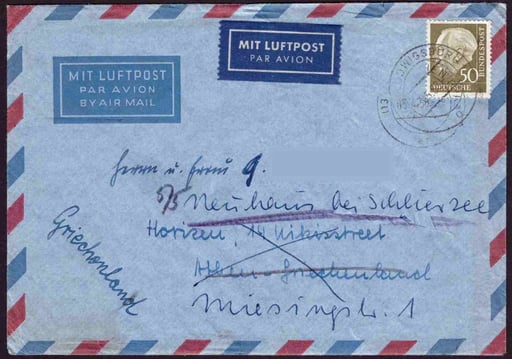 MIT LUFTPOST
PAR AVION
MIT LUFTPOST
PAR AVION
BY AIR MAIL
50
DEUTSCHE
BUNDESPOST
Herrn u. Frau G.
Neuhaus bei Schliersee
Horizon, 14 Nikisstreet
Athen - Griechenland
Miesingstr. 1
Griechenland